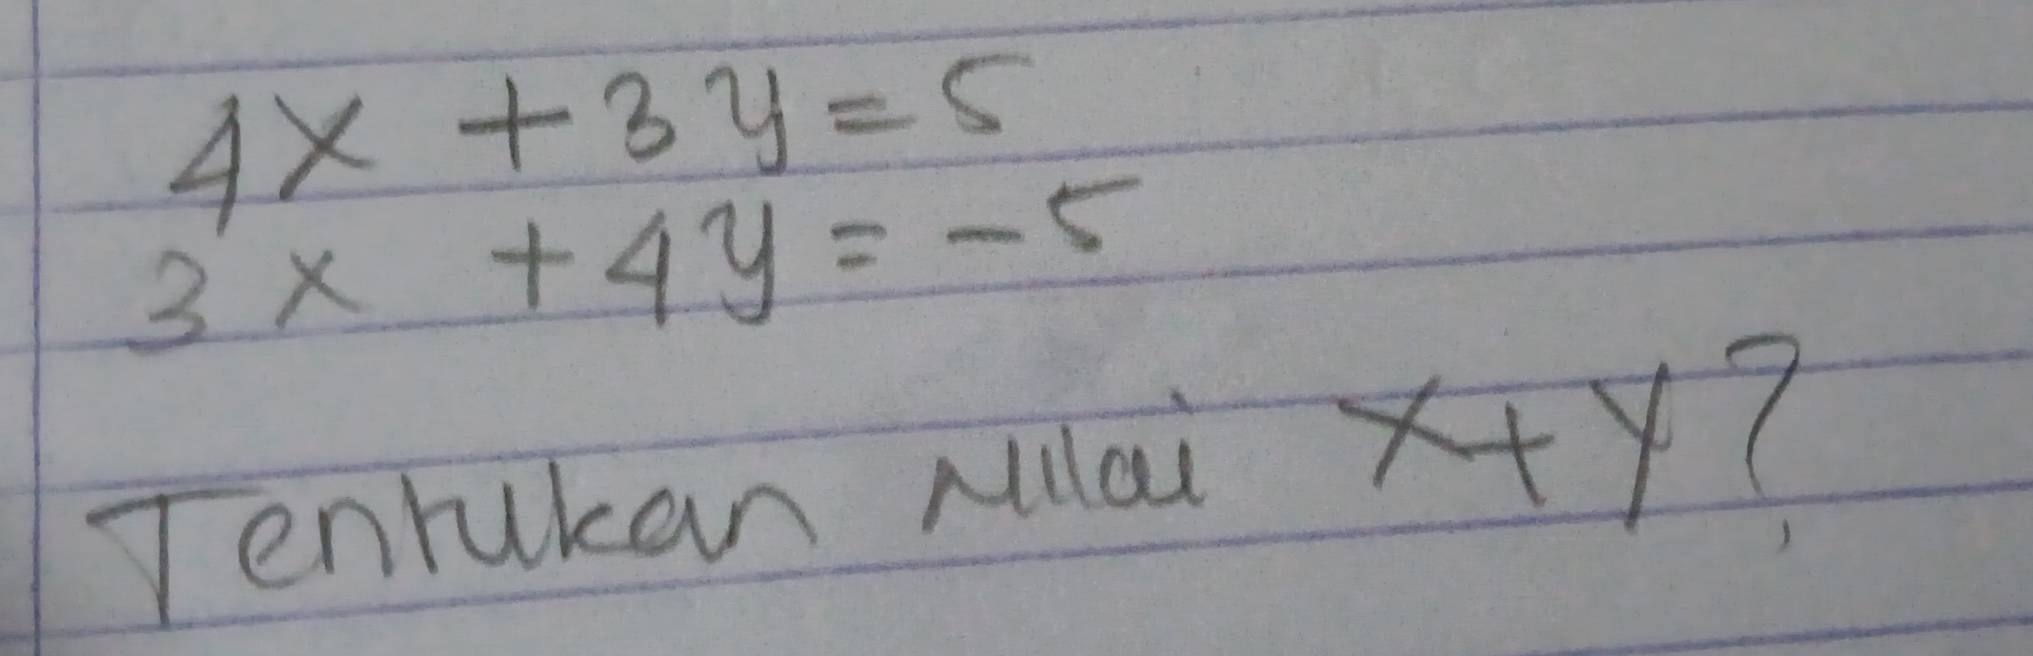 4x + 3y = 5
3x + 4y = -5
Tentukan Nilai x + y?